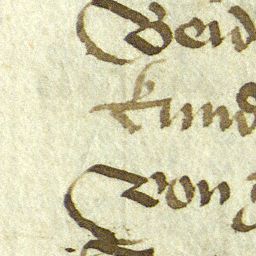 Beid
kund
Von g